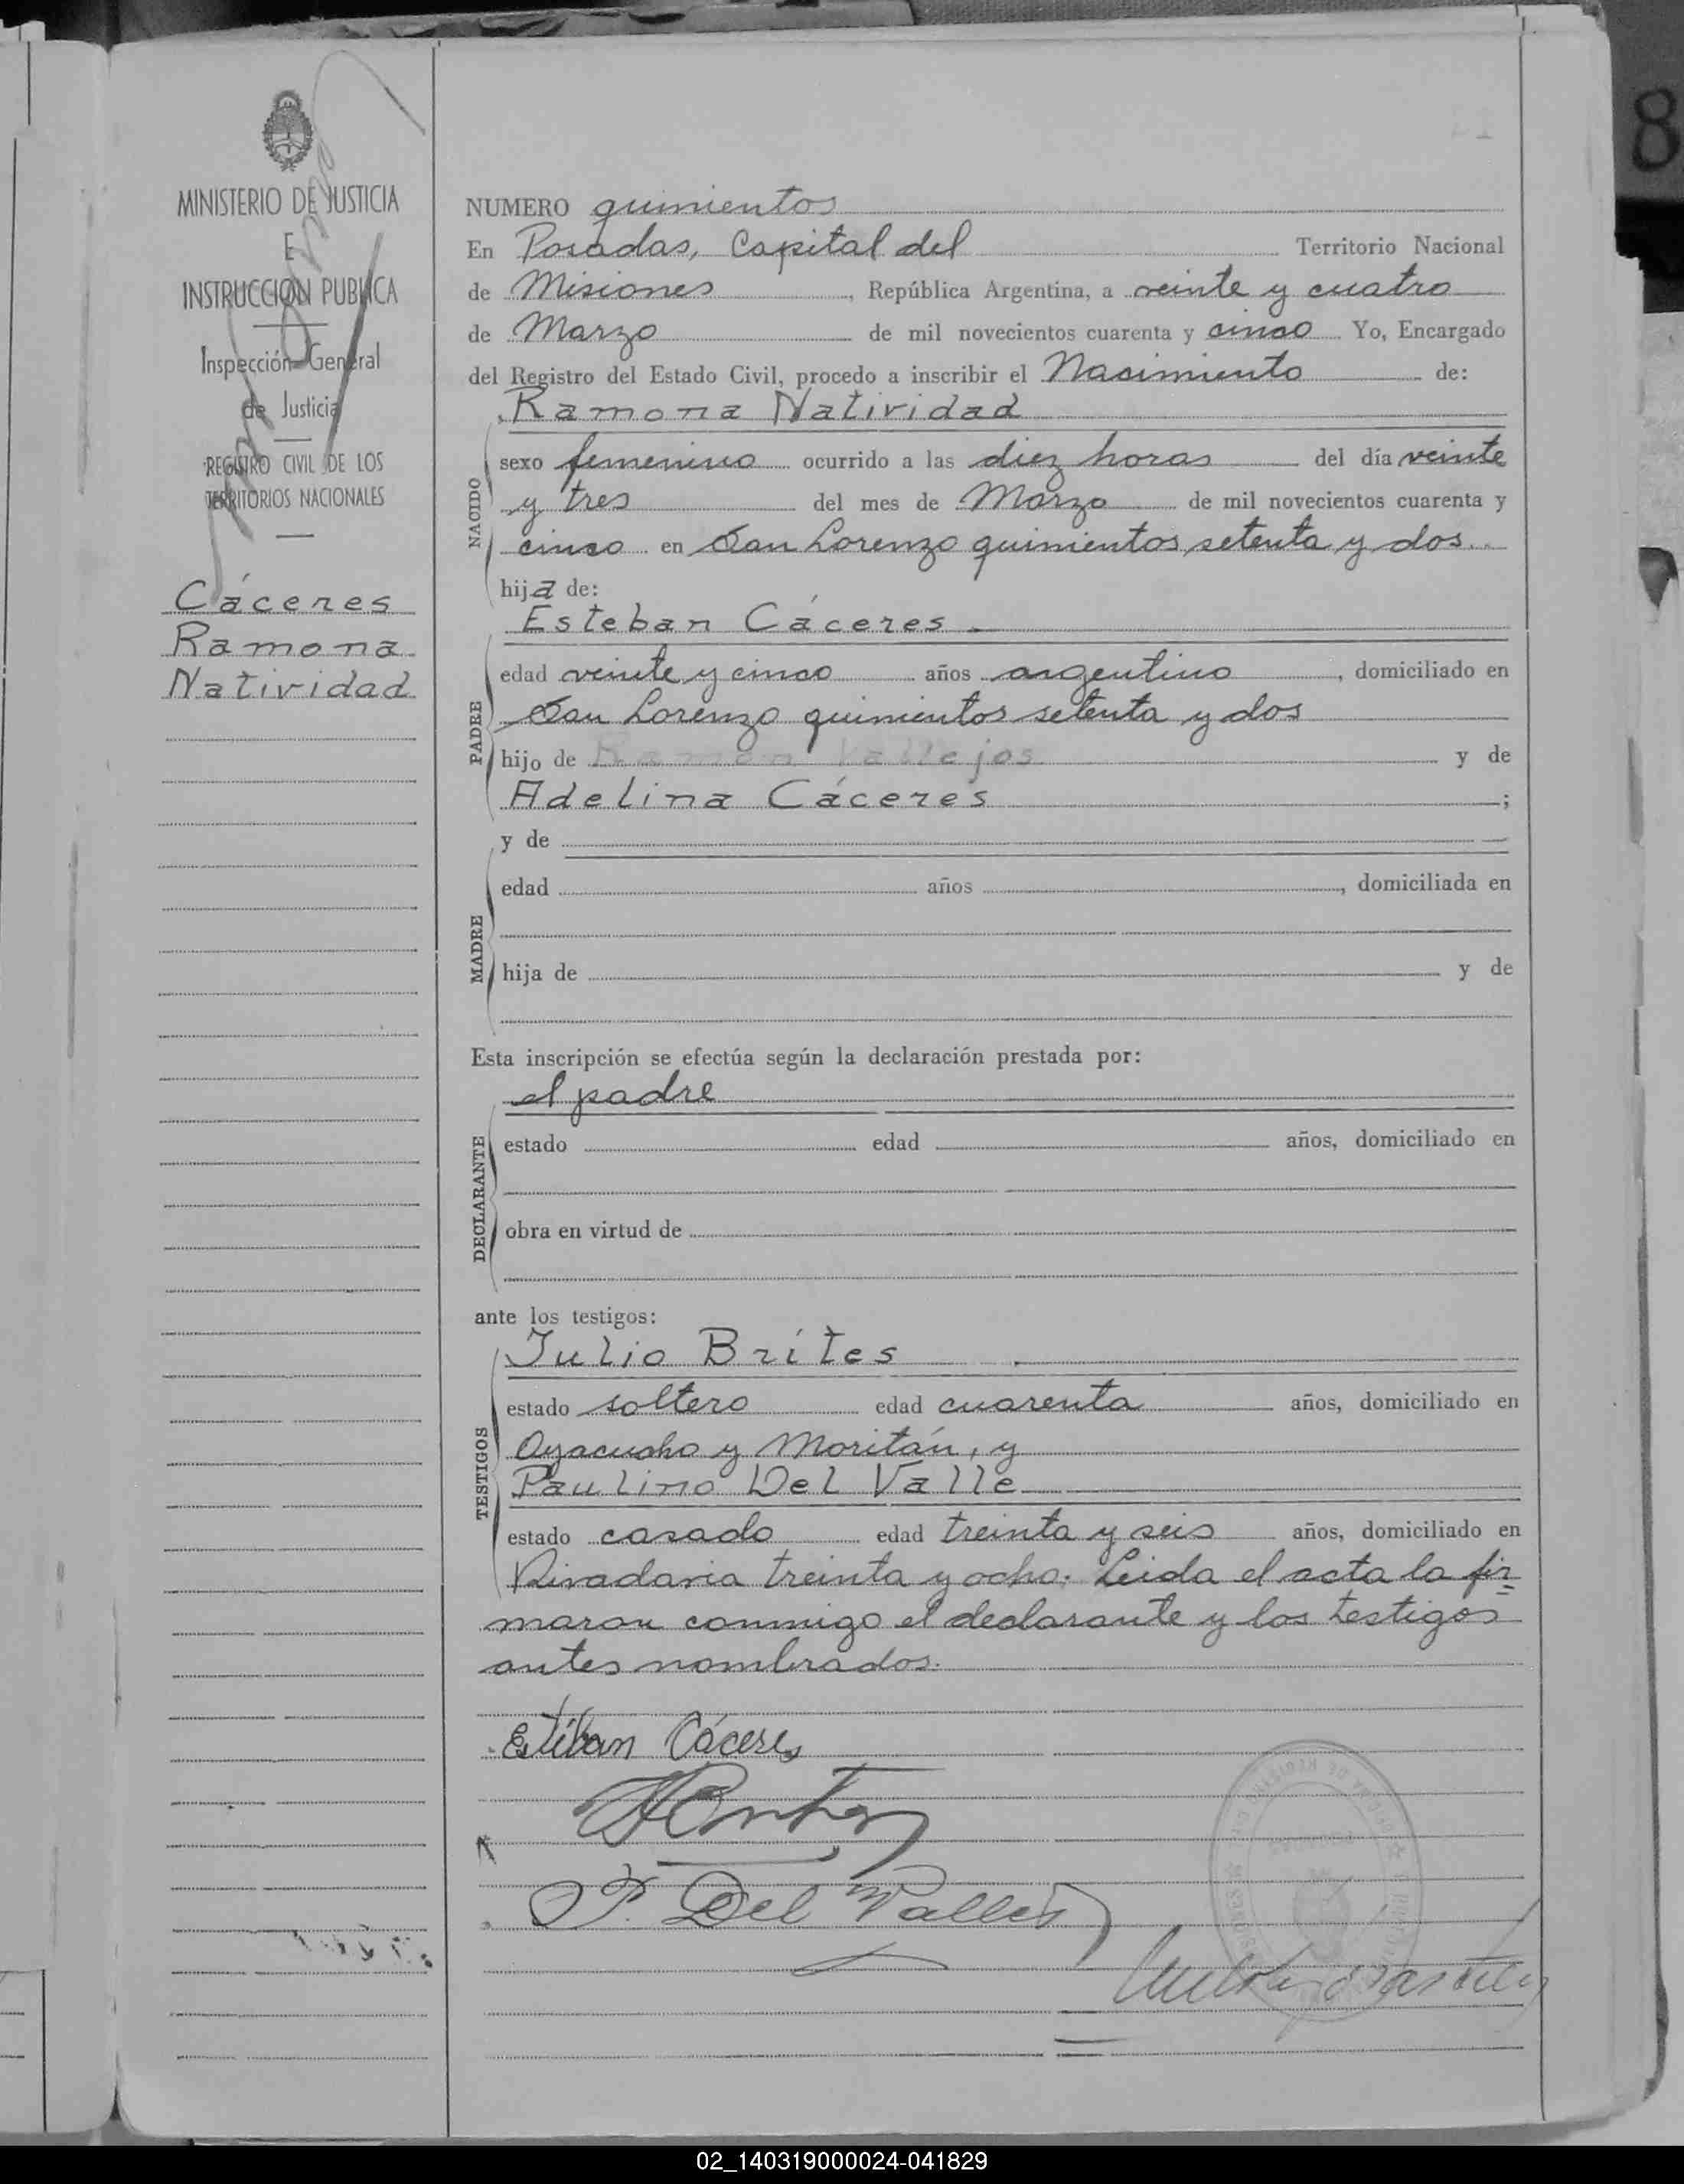 MINISTERIO DE JUSTICIA
E
INSTRUCCION PUBLICA
Inspección General
de Justicia
REGISTRO CIVIL DE LOS
TERRITORIOS NACIONALES
Cáceres
Ramona
Natividad
8
NUMERO quinientos
En Posadas, Capital del Territorio Nacional
de Misiones, República Argentina, a veinte y cuatro
de Marzo de mil novecientos cuarenta y cinco Yo, Encargado
del Registro del Estado Civil, procedo a inscribir el Nacimiento de:
Ramona Natividad
NACIDO
sexo femenino ocurrido a las diez horas del día veinte
y tres del mes de Marzo de mil novecientos cuarenta y
cinco en San Lorenzo quinientos setenta y dos
hija de:
Esteban Cáceres
PADRE
edad veinte y cinco años argentino, domiciliado en
San Lorenzo quinientos setenta y dos
hijo de Ramón Vallejos y de
Adelina Cáceres;
y de
MADRE
edad años, domiciliada en
hija de y de
Esta inscripción se efectúa según la declaración prestada por:
el padre
DECLARANTE
estado edad años, domiciliado en
obra en virtud de
ante los testigos:
Julio Brites
TESTIGOS
estado soltero edad cuarenta años, domiciliado en
Ayacucho y Moritán, y
Paulino Del Valle
estado casado edad treinta y seis años, domiciliado en
Rivadavia treinta y ocho. Leida el acta la fir=
maron conmigo el declarante y los testigos
antes nombrados.
Estéban Cáceres
P. Del Valle
02_140319000024-041829